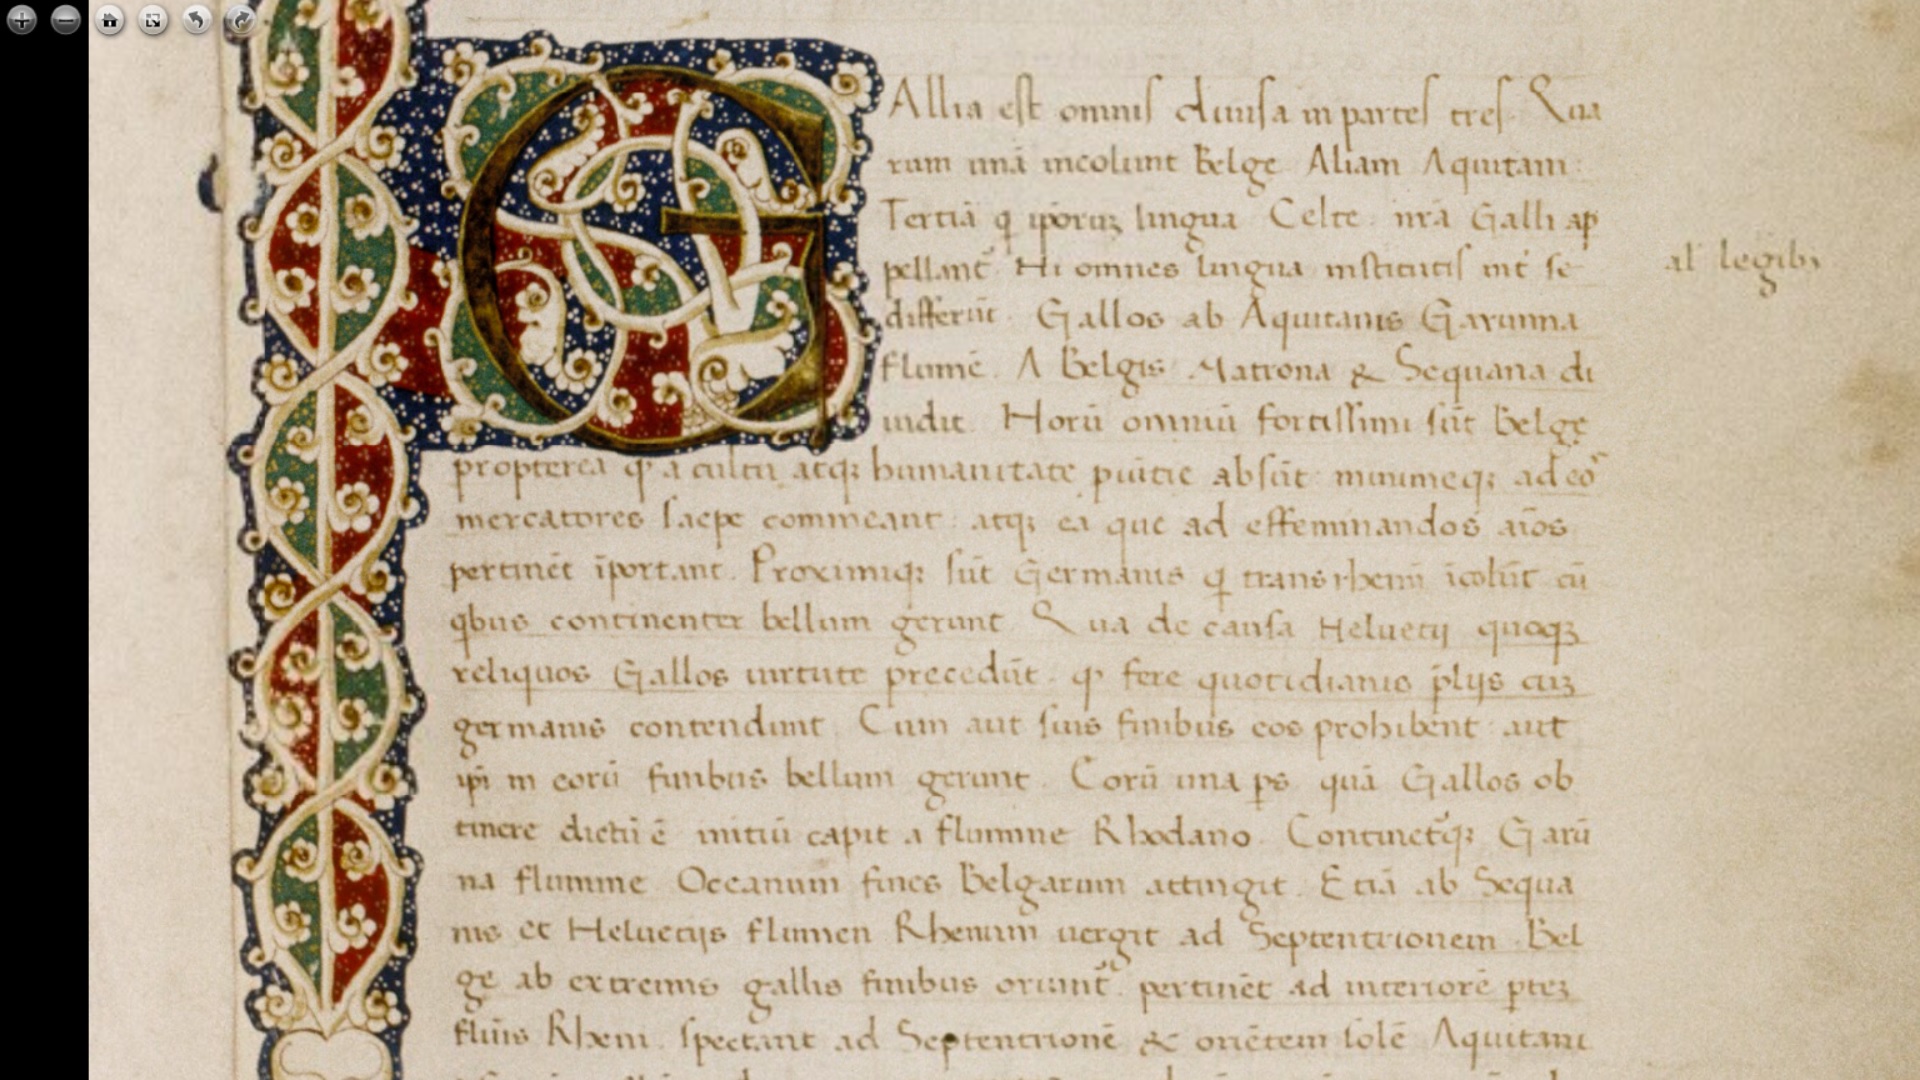 GAllia est omnis diuisa in partes tres Qua
rum unā incolunt Belge Aliam Aquitani:
Tertiā q ip̄oruꝫ lingua Celte. nr̄a Galli ap
pellant᷑ Hi omnes lingua institutis int̄ se
differūt. Gallos ab Aquitanis Garunna
flumē. A Belgis Matrona & Sequana di
uidit. Horū omniū fortissimi sūt Belge
propterea ꝙ a cultu atqꝫ humanitate ꝓuītie absūt minimeqꝫ ad eo᷑
mercatores saepe commeant: atqꝫ ea que ad effeminandos aīos
pertinēt īportant. Proximiqꝫ sūt Germanis q̄ trans rhenū īcolūt cū
qbus continenter bellum gerunt Qua de causa Heluetij quoqꝫ
reliquos Gallos uirtute precedūt. ꝙ fere quotidianis p̄lijs cuꝫ
germanis contendunt. Cum aut suis finibus eos prohibent aut
ip̄i in eorū finibus bellum gerunt. Eorū una ps quā Gallos ob
tinere dictū ē initiū capit a flumine Rhodano. Continet᷑qꝫ Garū
na flumine Oceanum fines Belgarum attingit. Etiā ab Sequa
nis et Heluetijs flumen Rhenum uergit ad Septentrionem Bel
ge ab extremis gallis finibus oriunt᷑. pertinēt ad interiorē ꝑteꝫ
flūis Rheni. spectant ad Septentrionē & oriētem solē Aquitani
al legibꝫ